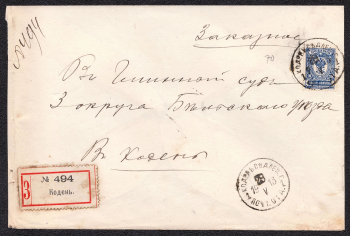 Заказное
№ 494
70
Въ Гминный судъ
3 округа Бѣльскаго уѣзда
Въ Кодень
З
№ 494
Кодень.